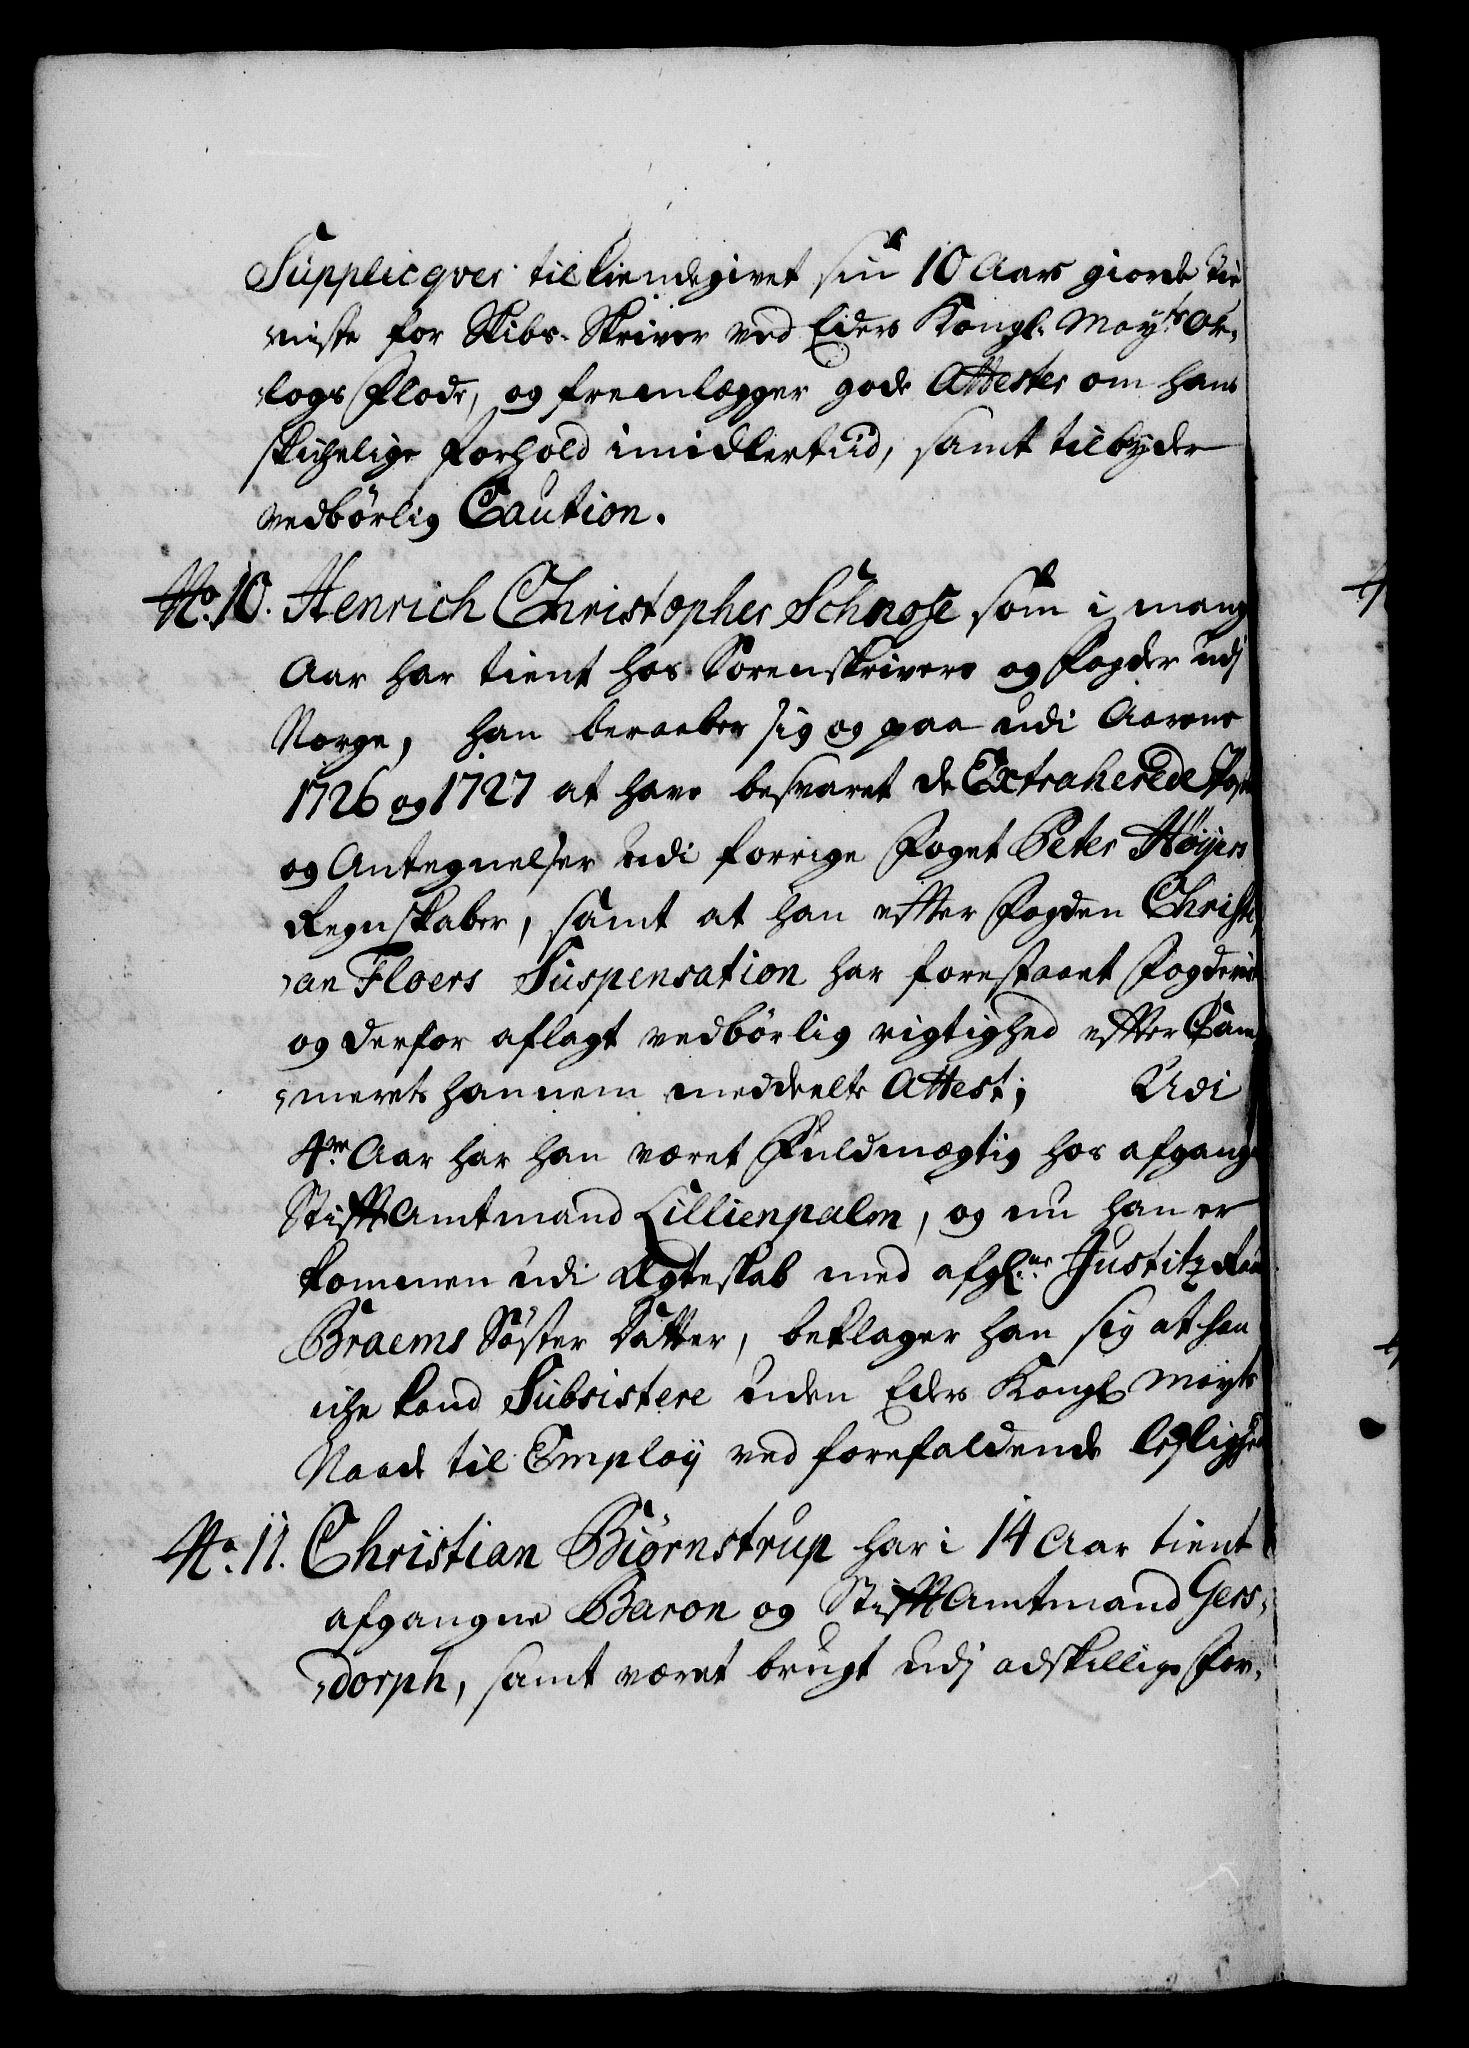 Supplicqver tilkiendegivet sin 10 Aars giorde tie
niste for Skibs-Skriver ved Eders Kongl: Mayts Or-
logs Flode, og fremlægger gode Attester om hans
skichelige Forhold imidlertiid, samt tilbyder
vedbörlig Caution.
No. 10. Henrich Christopher Schnose som i mang
Aar har tient hos Sorenskrivere og Fogder udj
Norge, han beraaber sig og paa udi Aarene
1726 og 1727 at have besvaret de Extraherede Post
og Antegnelser udi forrige Foget Peter Höijers
Regnskaber, samt at han effter Fogden Christi
an Floers Suspensation har forestaaet Fogderiet
og derfor aflagt vedbörlig rigtighed effter Cam
merets hannem meddeelte Attest; Udi
4re Aar har han været Fuldmægtig hos afgangne
Stifftamtmand Lillienpalm, og nu han er
kommen udi Ægteskab med afgl: Justitz Raad
Braems Söster Datter, beklager han sig at han
iche kand Subsistere uden Eders Kongl Mayts
Naade til Employ ved forefaldende leylighed
No. 11. Christian Biørnstrup har i 14 Aar tient
afgangne Baron og Stifftamtmand Gers-
dorph, samt været brugt udj adskillige For-